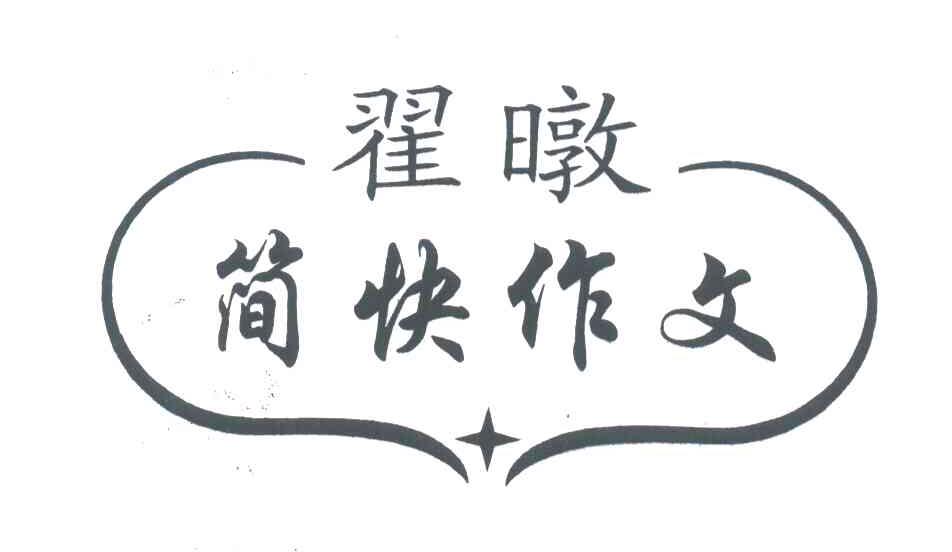 翟暾
简快作文